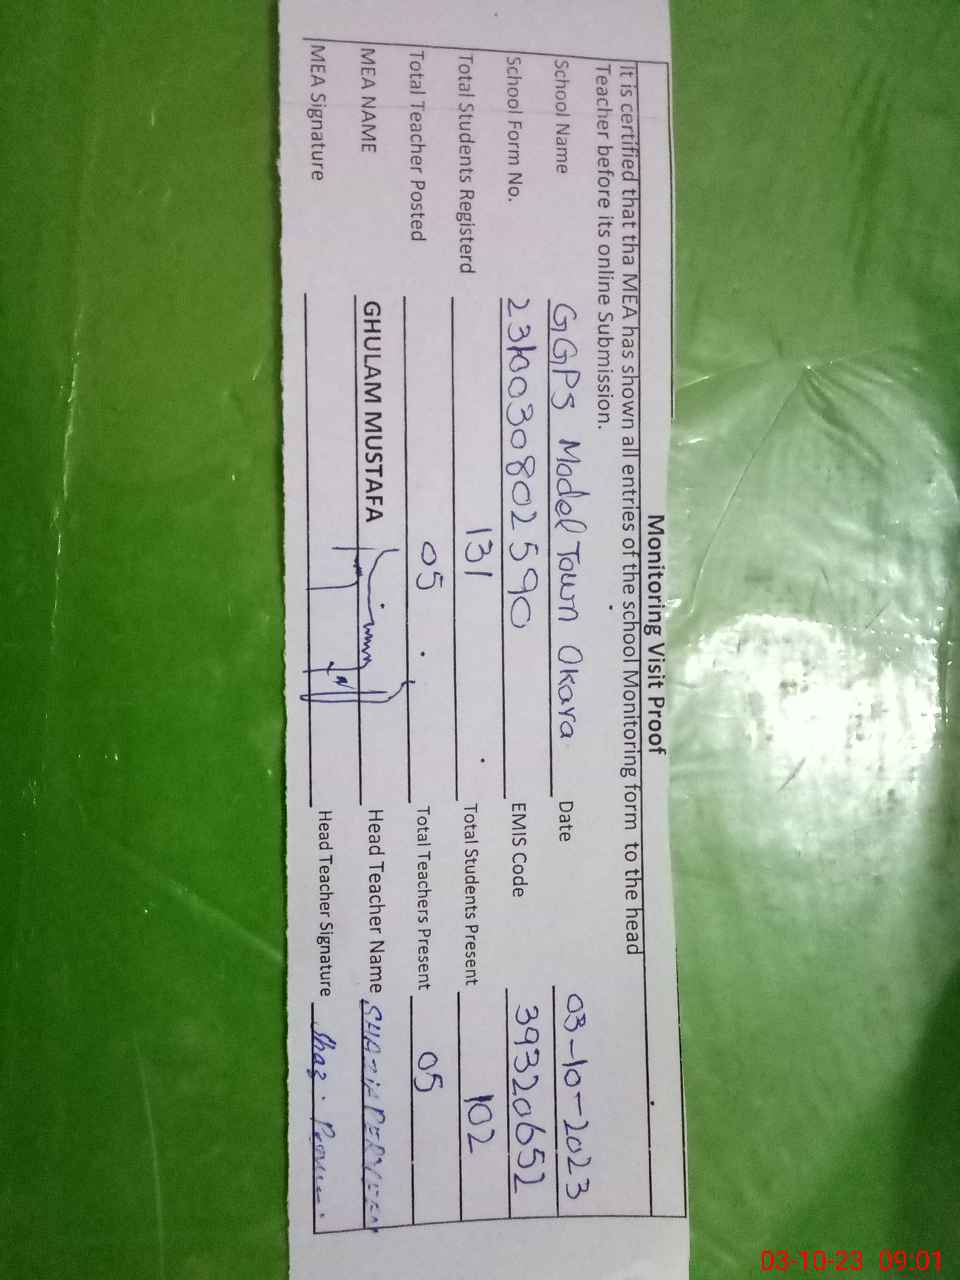 Monitoring Visit Proof
It is certified that tha MEA has shown all entries of the school Monitoring form to the head
Teacher before its online Submission.
School Name GGPS Model Town Okara Date 03-10-2023
School Form No. 2310030802590 EMIS Code 39320652
Total Students Registerd 131 Total Students Present 102
Total Teacher Posted 05 Total Teachers Present 05
MEA NAME GHULAM MUSTAFA Head Teacher Name SHAZIA PERVEEN
MEA Signature Head Teacher Signature Shaz.
03-10-23 09:01